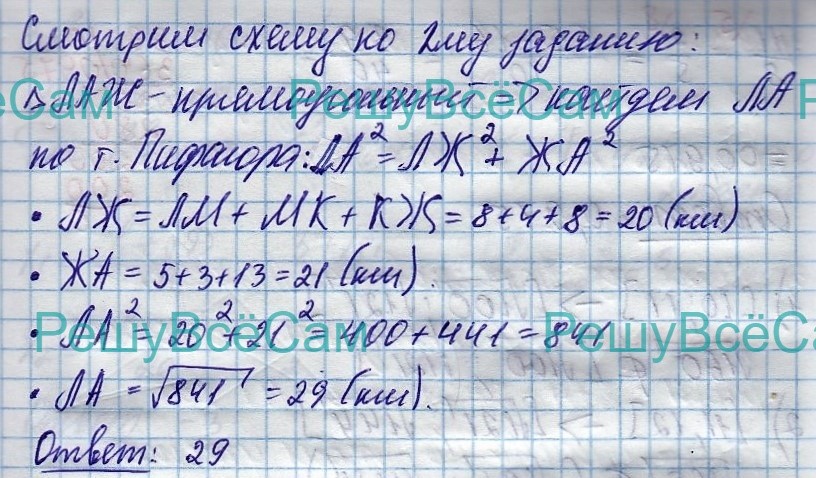 Смотрим схему ко 2му заданию:
△ЛАЖ - прямоугольный => найдем ЛА
по т. Пифагора: ЛА² = ЛЖ² + ЖА²
• ЛЖ = ЛМ + МК + КЖ = 8+4+8 = 20 (км)
• ЖА = 5+3+13 = 21 (км).
• ЛА² = 20² + 21² = 400 + 441 = 841
• ЛА = √841 = 29 (км).
Ответ: 29
РешуВсёСам
РешуВсёСам
РешуВсёСам
РешуВсёСам